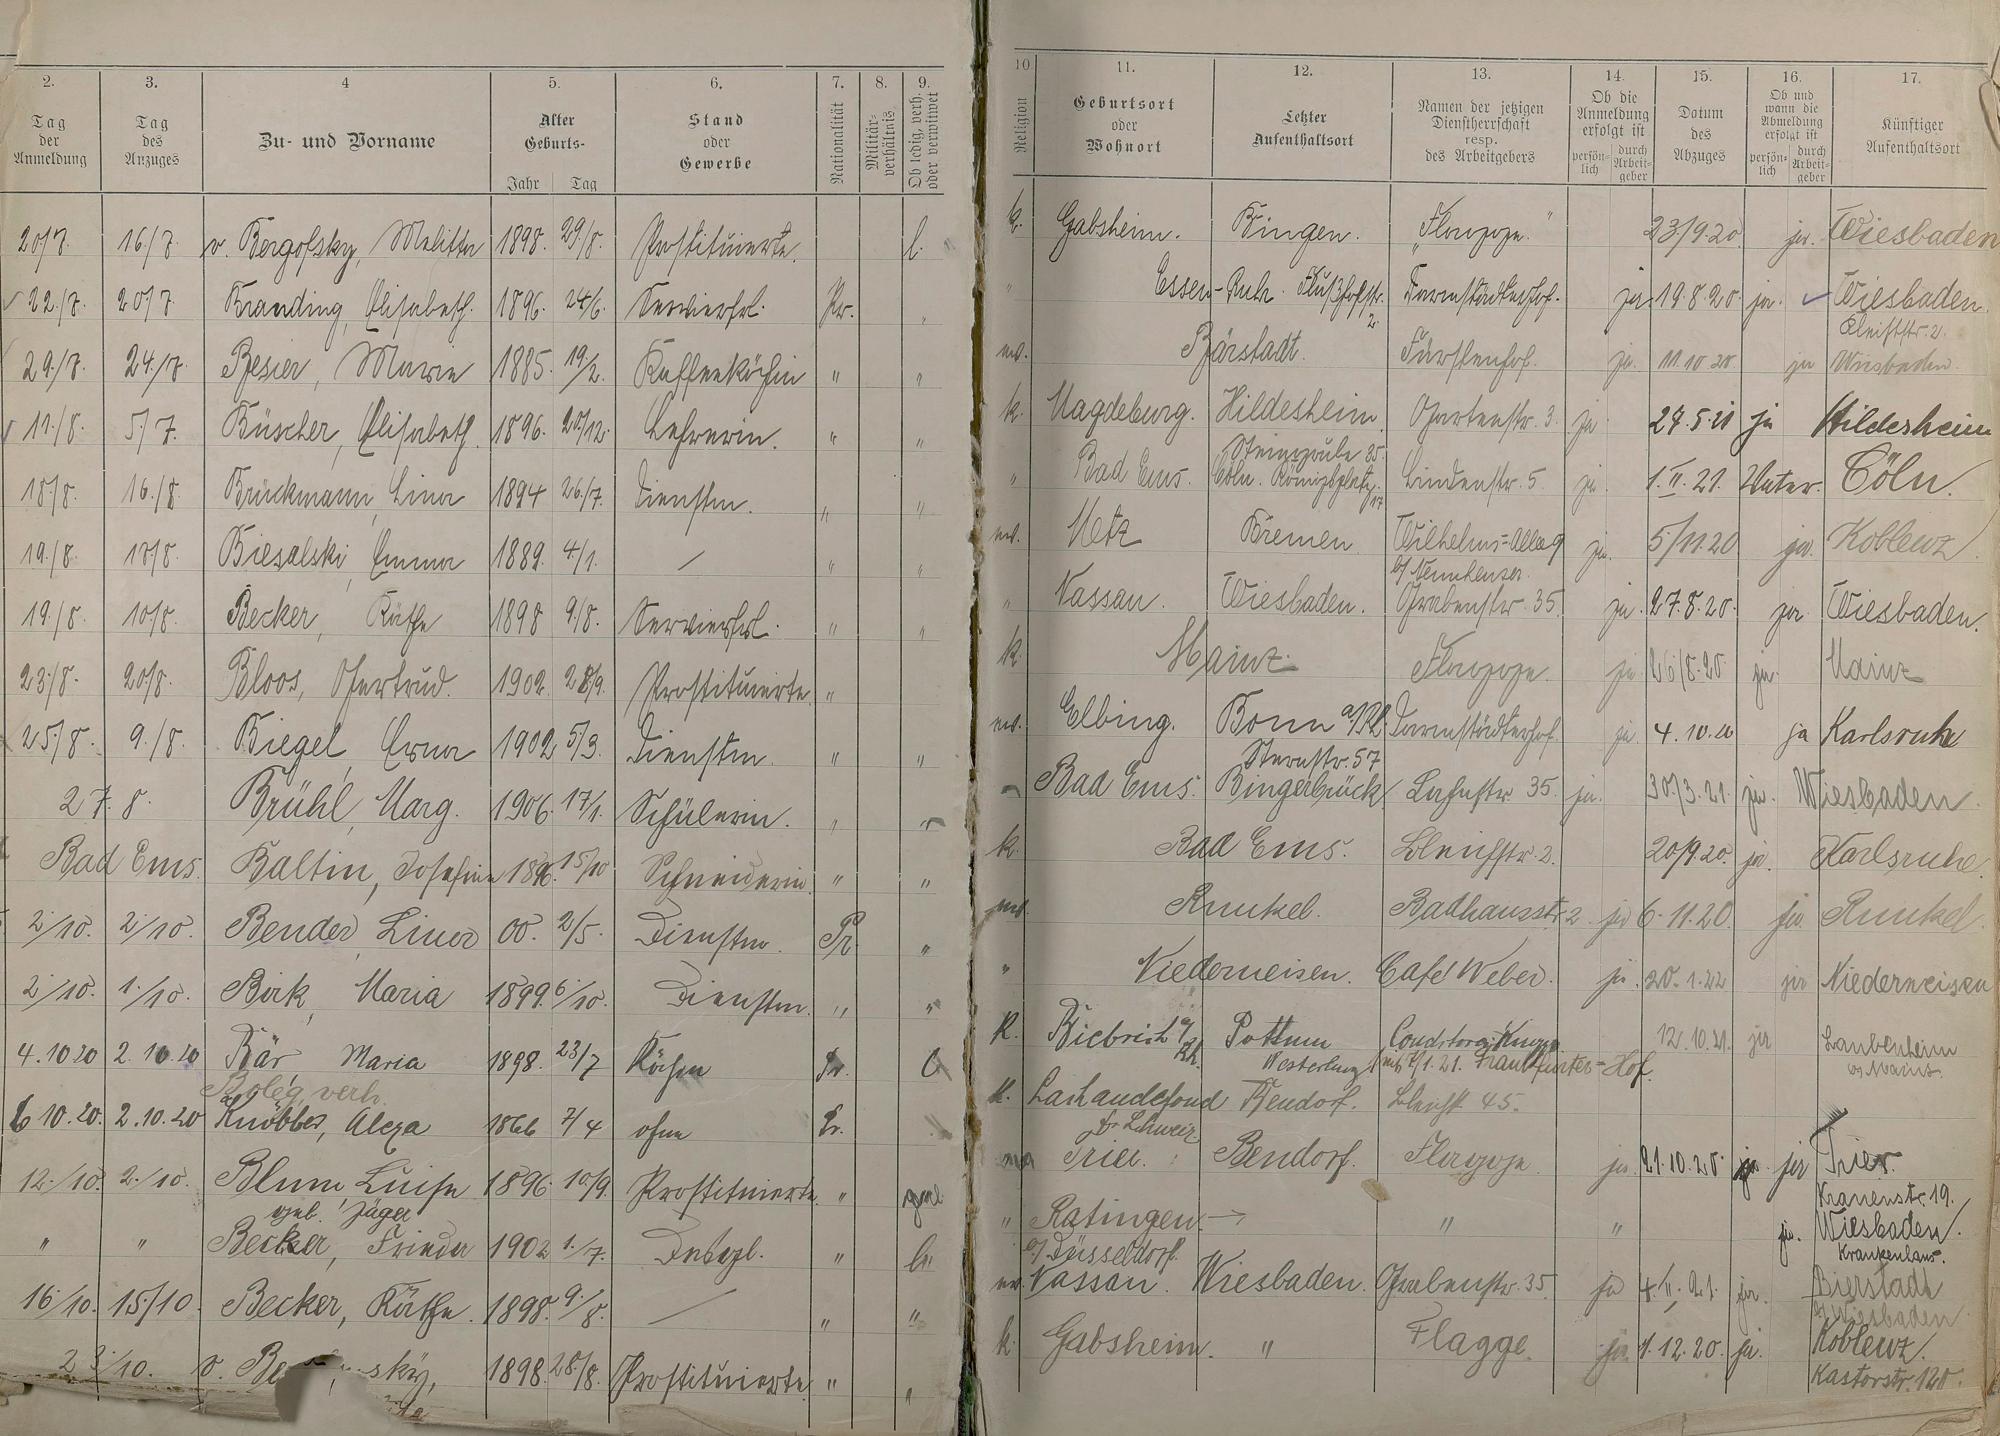 2. 3. 4 5. 6. 7. 8. 9. 10 11. 12. 13. 14. 15. 16. 17.
Tag der Anmeldung
Tag des Anzuges
Zu- und Vorname
Alter Geburts- Jahr Tag
Stand oder Gewerbe
Nationalität
Militärverhältnis
Ob ledig, verh. oder verwitwet
Religion
Geburtsort oder Wohnort
Letzter Aufenthaltsort
Namen der jetzigen Dienstherrschaft resp. des Arbeitgebers
Ob die Anmeldung erfolgt ist persönlich durch Arbeitgeber
Datum des Abzuges
Ob und wann die Abmeldung erfolgt ist persönlich durch Arbeitgeber
Künftiger Aufenthaltsort
20/7. 16./7. v. Melitta 1898. 29/8. Prostituierte. l. k. Gabsheim. Bingen. „Flagge" 23/9.20 ja. Wiesbaden
22./7. 20/7 Branding, Elisabeth. 1896. 24/6. Servierfrl. Pr. " " Essen-Ruh. 2. Darmstädterhof. ja 19.8.20. ja. Wiesbaden.
Bleichstr. 2.
29./7. 24./7. Besier, Marie 1885. 19/2. Kaffeeköchin " " ev. Bärstadt. Fürstenhof. ja. 11.10.20. ja Wiesbaden.
11./8. 5/7. Büscher, Elisabeth. 1896. 20./12. Lehrerin. " " k. Magdeburg. Hildesheim. Gartenstr. 3. ja 27.5.21 ja Hildesheim
Steingrube 35.
18/8. 16./8. Brückmann, Lina 1894 26./7. Dienstm. " " " Bad Ems. Cöln. Königsplatz. 17 Lindenstr. 5. ja. 1.II.21. Vater. Cöln.
19./8. 18/8. Biesalski, Emma 1889. 4/1. / " " ev. Metz Bremen. Wilhelms-Allee 9 ja. 5/11.20 ja. Koblenz.
19./8. 10./8. Becker, Käthe 1898 9/8. Servierfrl. " " " Nassau. Wiesbaden. Grabenstr. 35. ja. 27.8.20. ja Wiesbaden.
23/8. 20/8. Bloos, Gertrud. 1902. 28/9. Prostituierte. " k. Mainz. Flagge. ja 26/8.20 ja. Mainz
25/8. 9./8. Biegel, Erna 1902 5/3. Dienstm. " " ev. Elbing. Bonn a/Rh. Darmstädterhof. ja. 4.10.20 ja Karlsruhe
Sternstr. 57
27. 8. Brühl, Marg. 1906. 17/1. Schülerin. " " " Bad Ems. Bingerbrück Lahnstr. 35. ja. 30./3.21. ja. Wiesbaden.
Bad Ems. Baltin, Josefine 1896. 15/10 Schneiderin. " " k. Bad Ems. Bleichstr. 2. 20/9.20. ja. Karlsruhe.
2./10. 2./10. Bender, Lina 00. 2/5. Dienstm. Pr. " ev. Runkel. Badhausstr. 2. ja 6.11.20. ja. Runkel.
2./10. 1./10. Birk, Maria 1899. 6/10. Dienstm. " " " Niederneisen. Café Weber. ja. 20.1.22 ja Niederneisen
4.10 20 2.10.20 Bär, Maria 1898. 23/7 Köchin Pr. l K. Biebrich a/Rh. Pottum 12.10.21. ja Laubenheim
Westerburg 1.21. Frankfurter-Hof. b/ Mainz.
verh.
6 10.20. 2.10.20 Knöbber, Alexa 1866 7/4 ohne Pr. K. Bendorf. Bleichstr 45.
Schweiz.
12./10. 2./10. Blum, Luise 1896. 10/9. Prostituierte " Trier. Bendorf. Flagge ja. 21.10.20 ja ja Trier.
geb. Jäger Kranenstr. 19.
" " Becker, Frieda 1902 1./7. " " Ratingen " " ja. Wiesbaden.
b/ Düsseldorf. Krankenhaus.
16/10. 15/10. Becker, Käthe. 1898. 9./8. / " " ev. Nassau. Wiesbaden. Grabenstr. 35. ja 4.II.21. ja. Bierstadt
b/ Wiesbaden.
23/10. v. 1898. 28/8. Prostituierte " " k. Gabsheim. " Flagge. ja 1.12.20. ja. Koblenz.
Kastorstr. 120.